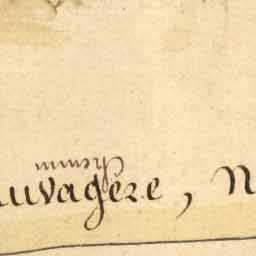 Chemin
auvagère, N